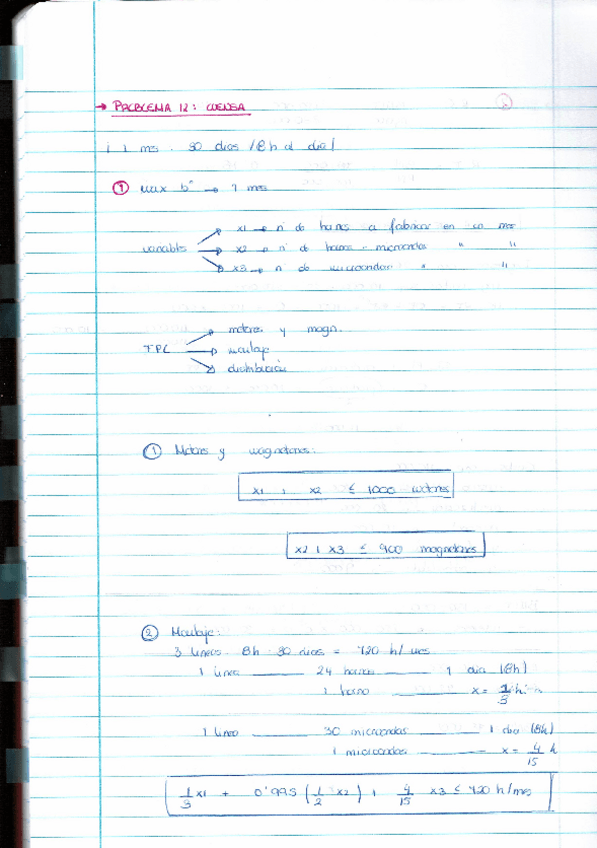 → PROBLEMA 12: CUENSA
1 mes · 30 dias / 8h al dia /
① max bº → 1 mes
x1 → nº de hornos a fabricar en un mes
variables → x2 → nº de hornos - microondas " "
x3 → nº de microondas " "
motores y magn.
TPC → montaje
distribución
① Motores y magnetrones:
x1 + x2 ≤ 1000 motores
x2 + x3 ≤ 900 magnetrones
② Montaje:
3 lineas · 8h · 30 dias = 720 h/mes
1 linea —— 24 hornos —— 1 dia (8h)
1 horno —— x = 1/3 h
1 linea —— 30 microondas —— 1 dia (8h)
1 microondas —— x = 4/15 h
1/3 x1 + 0'995 (1/2 x2) + 4/15 x3 ≤ 720 h/mes